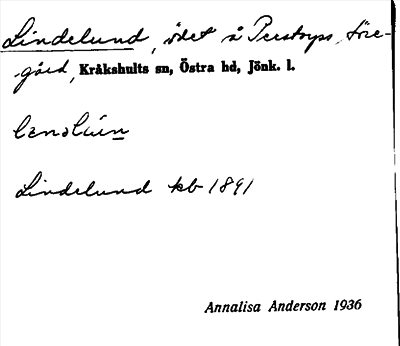 Lindelund, ödet å Perstorps, Söre-
gård, Kråkshults sn, Östra hd, Jönk. l.
Lindelund kb 1891
Annalisa Anderson 1936